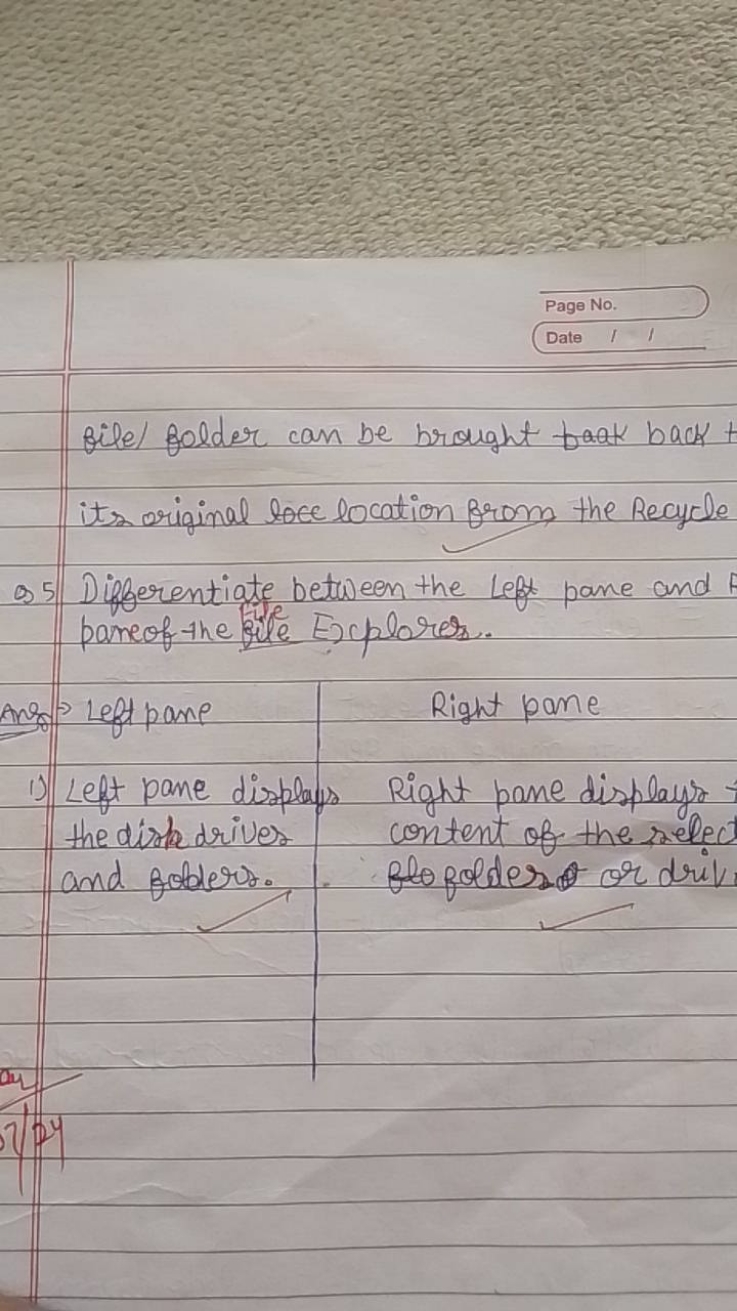 Page No.
Date / /
file/ folder can be brought back back t
its original loce location from the Recycle
Q5 Differentiate between the Left pane and R
File
pane of the file Explorer.
Ans → Left pane Right pane
1) Left pane displays Right pane displays t
the disk drives content of the select
and folders. flo folders or driv
07/24